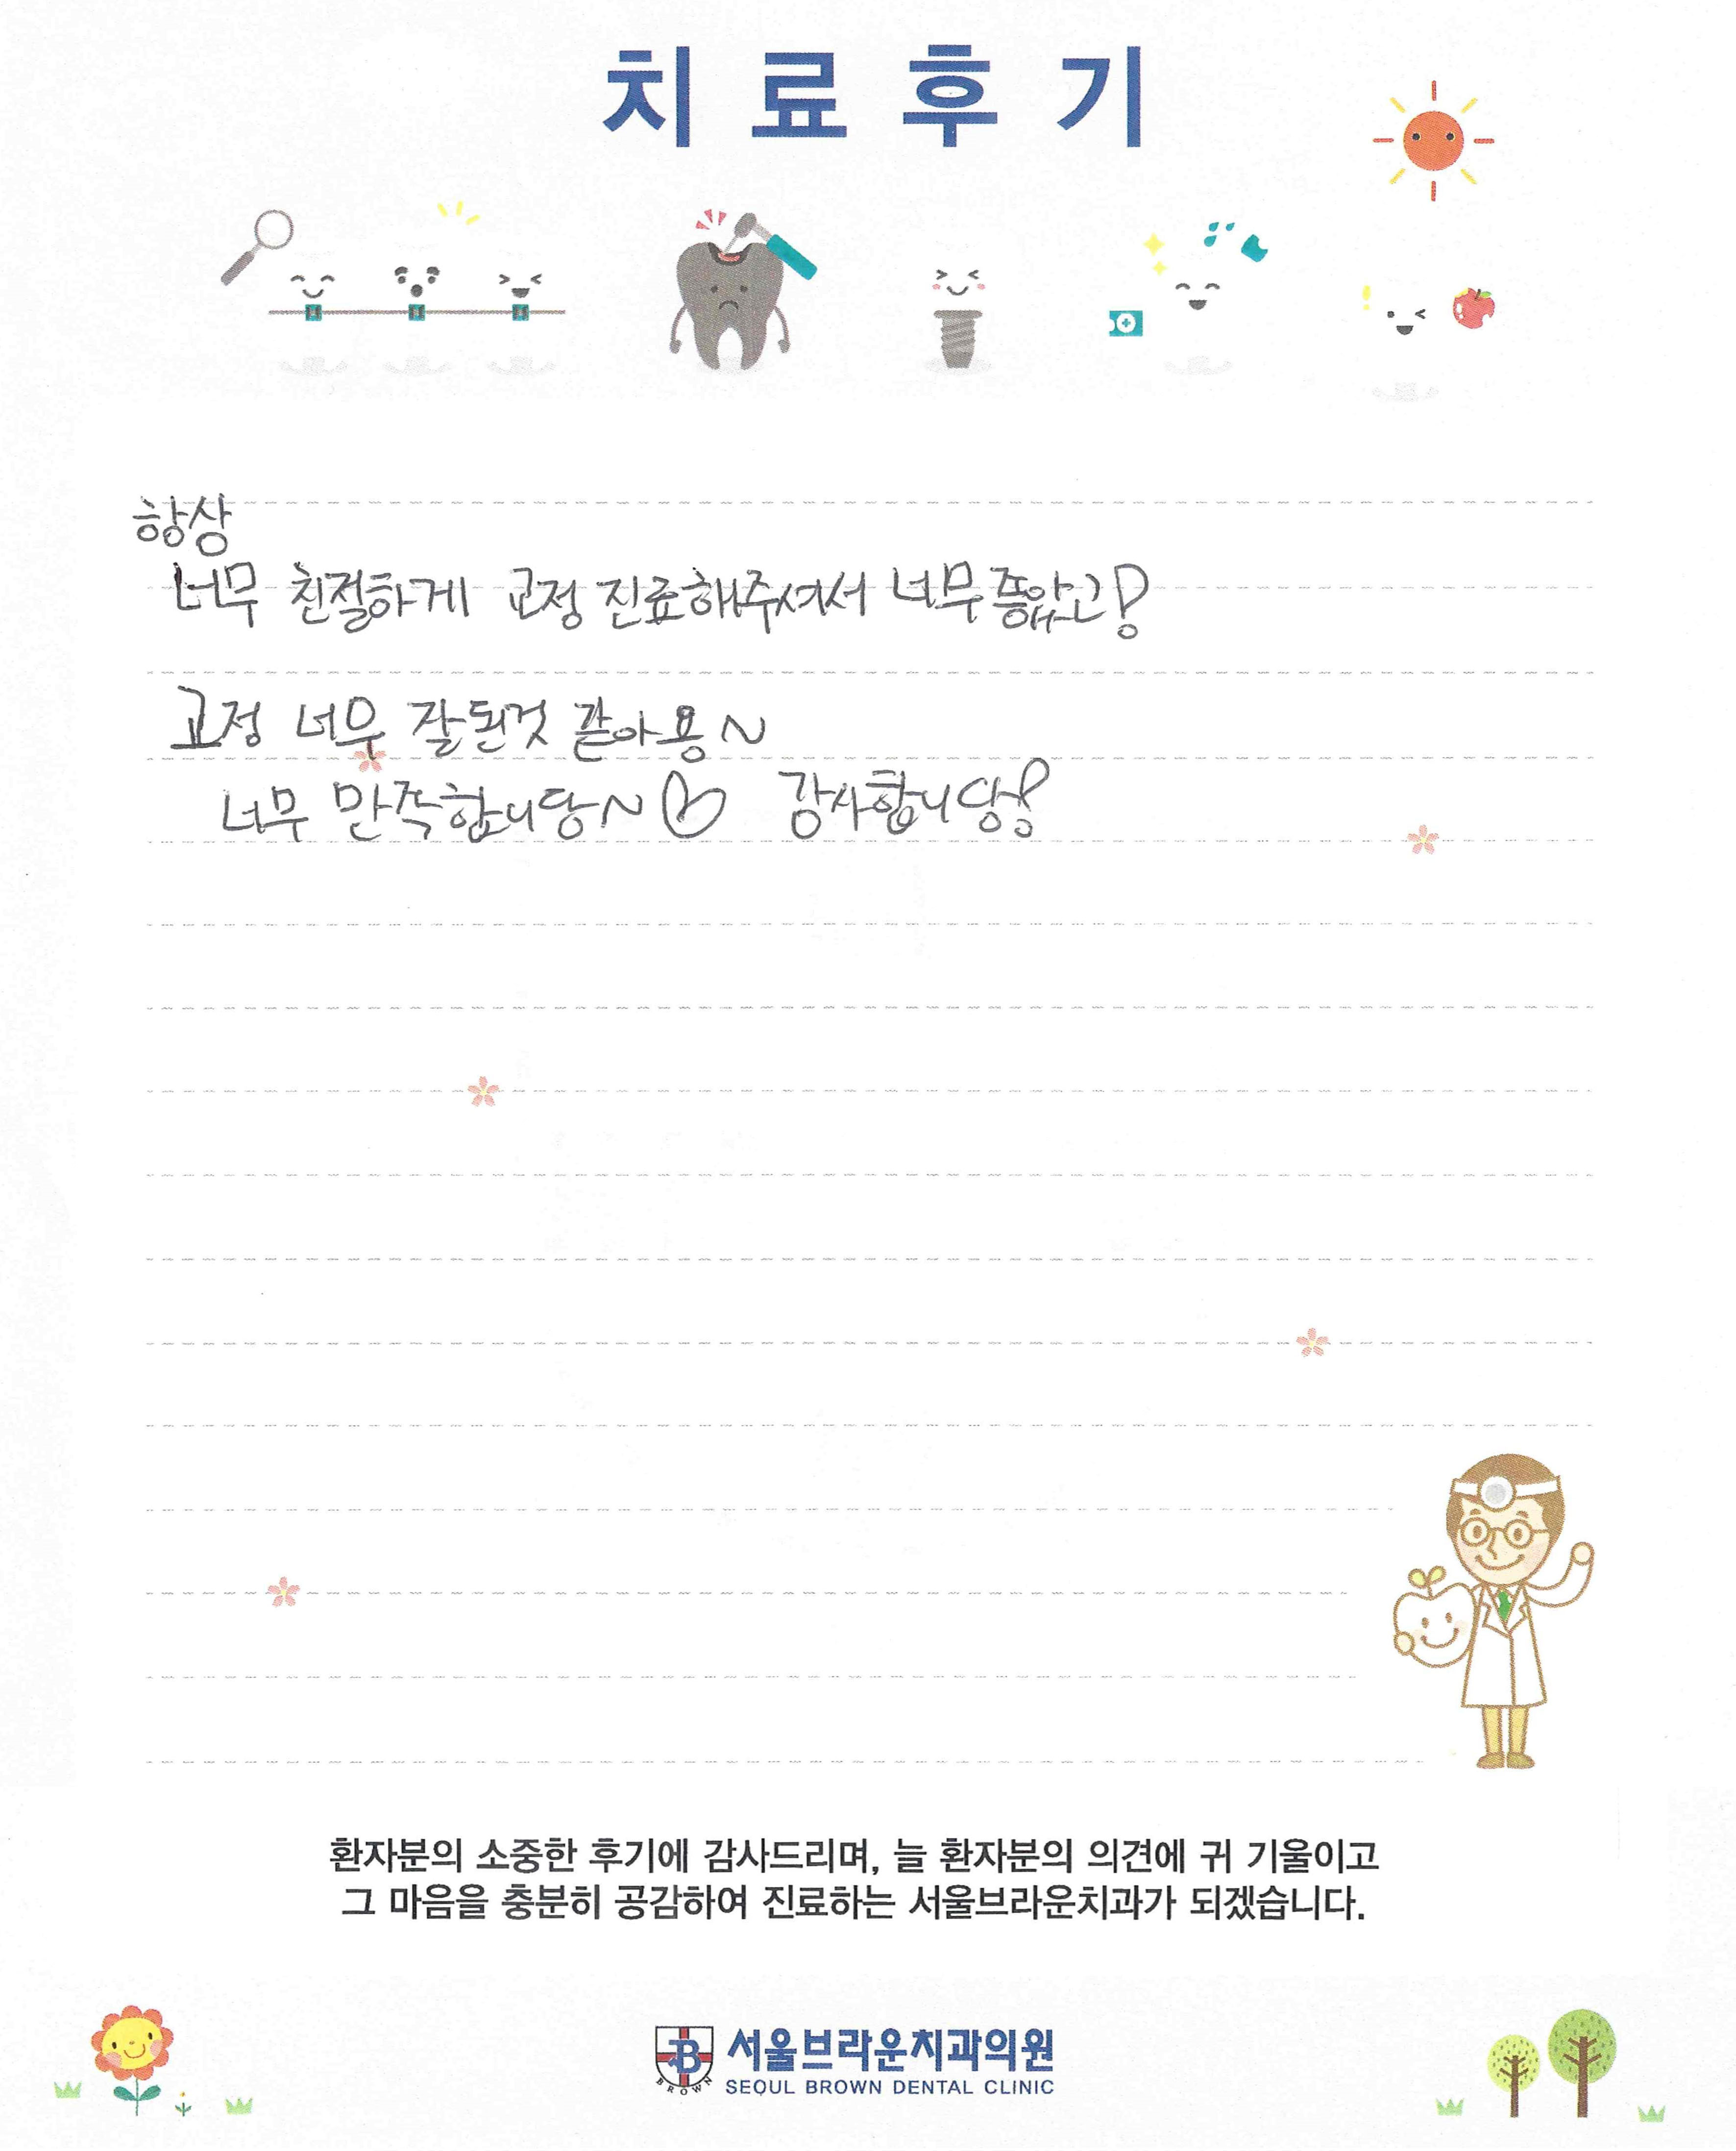 치료후기
항상
너무 친절하게 교정 진료해주셔서 너무 좋았고!
교정 너무 잘된것 같아용~
너무 만족합니당~ 감사합니당!
환자분의 소중한 후기에 감사드리며, 늘 환자분의 의견에 귀 기울이고
그 마음을 충분히 공감하여 진료하는 서울브라운치과가 되겠습니다.
B
BROWN
서울브라운치과의원
SEOUL BROWN DENTAL CLINIC